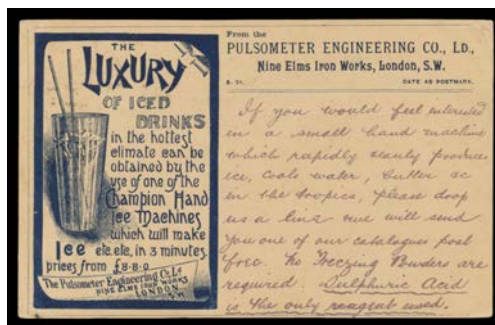 THE
LUXURY
OF ICED
DRINKS
in the hottest
climate can be
obtained by the
use of one of the
Champion Hand
Ice Machines
which will make
Ice etc. etc. in 3 minutes.
prices from £8-8-0
The Pulsometer Engineering Co. Ld
NINE ELMS IRON WORKS
LONDON
S.W.
From the
PULSOMETER ENGINEERING CO., LD.,
Nine Elms Iron Works, London, S.W.
DATE AS POSTMARK.
If you would feel interested
in a small hand machine
which rapidly produces
ice, cools water, butter &c
in the tropics, please drop
us a line & we will send
you one of our catalogues post
free. No Freezing Powders are
required. Sulphuric Acid
is the only reagent used.